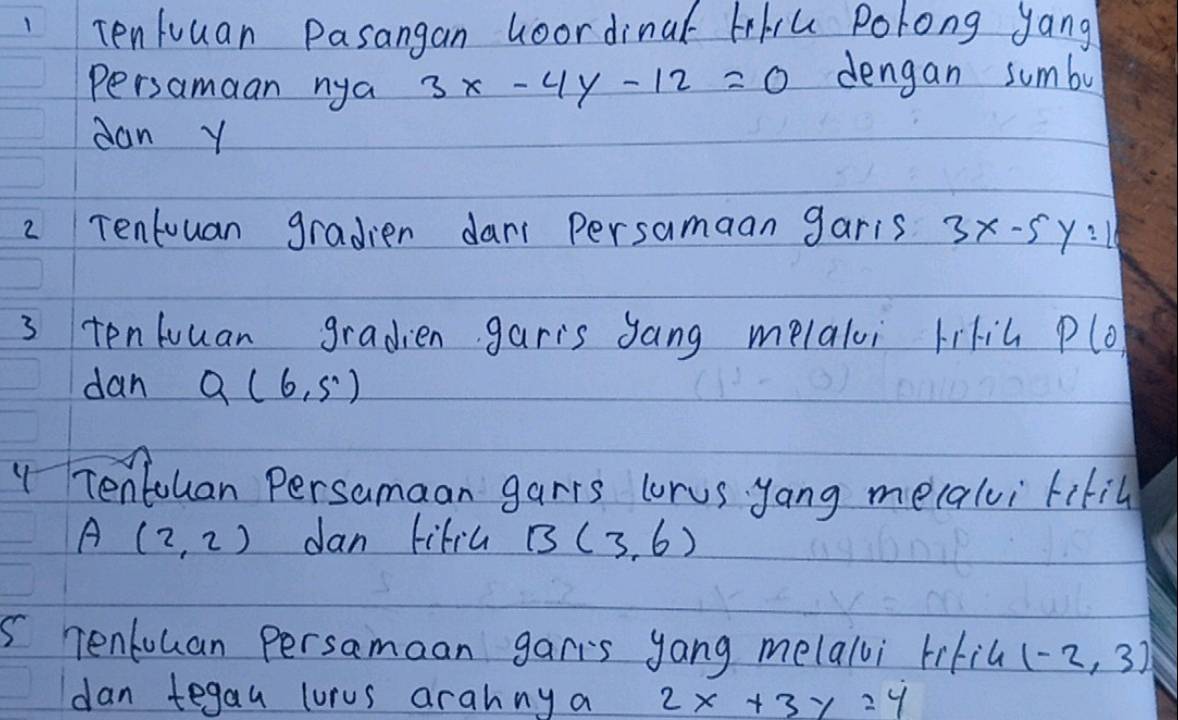 1 Tentukan Pasangan koordinat titik Potong yang
Persamaan nya 3x - 4y - 12 = 0 dengan sumbu
dan y
2 Tentukan gradien dari Persamaan garis 3x - 5y = 1
3 tentukan gradien garis yang melalui titik P(0,
dan Q (6,5)
4 Tentukan Persamaan garis lurus yang melalui titik
A (2,2) dan titik B (3,6)
5 Tentukan Persamaan garis yang melalui titik (-2, 3)
dan tegak lurus arahnya 2x + 3y = 4